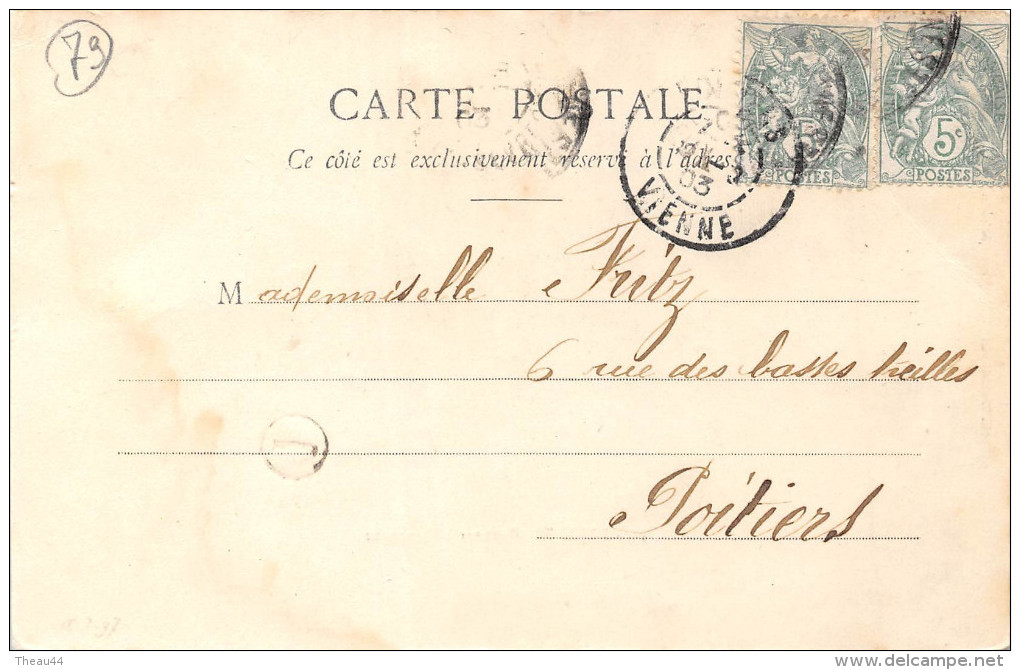 79
CARTE POSTALE
Ce côté est exclusivement réservé à l'adresse
5c
POSTES
5c
POSTES
03
VIENNE
Mademoiselle Fritz
6 rue des basses treilles
J
Poitiers
Theau44
delcampe.net